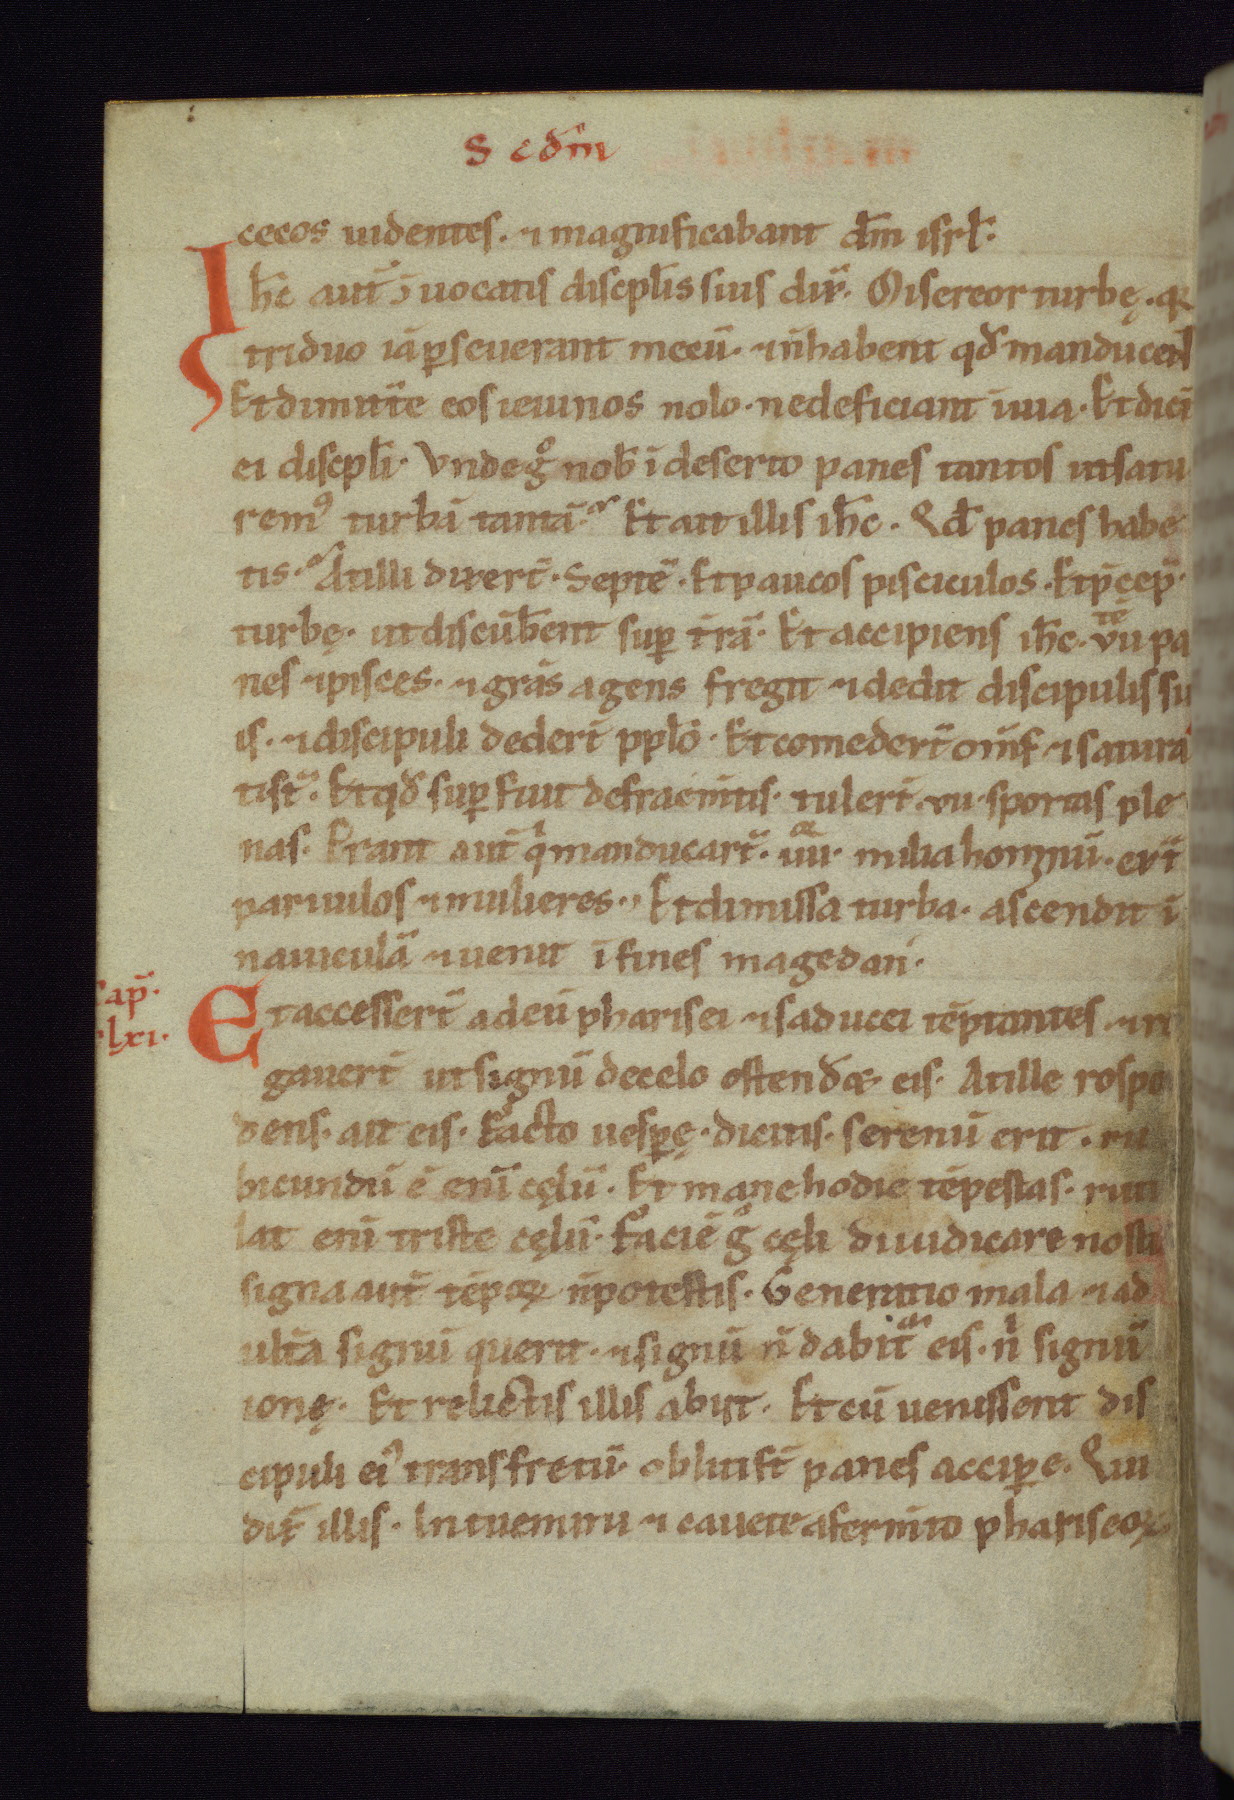 S cdm̄
cecos uidentes. ⁊ magnificabant dm̄ isrl̄.
Ihc̄ aut̄ ɔuocatis discpl̄is suis dix̄. Misereor turbę. qꝛ
triduo iā ꝑseuerant mecū. ⁊ n̄ habent qd̄ manducent
Et dimitt̄e eos ieiunos nolo. ne deficiant ī uia. Et dict̄
ei discpl̄i. Vnde gͦ nob̄ ī deserto panes tantos ut satu
remꝰ turbā tantā. Et ait illis ihc̄. Qd̄ panes habe
tis. At illi dixer̄t. Septē. Et paucos pisciculos. Et p̄cep̄.
turbę. ut discūb̄ent sup̄ t̄rā. Et accipiens ihc̄. vii tē pa
nes ⁊ pisces. ⁊ grās agens fregit ⁊ dedit discipulis su
is. ⁊ discipuli deder̄t pplō. Et comeder̄t om̄s ⁊ satura
ti st̄. Et qd̄ sup̄ fuit de fragm̄tis. tuler̄t. vii. sportas ple
nas. Erant aut̄ qⁱ manducar̄t. iiii. milia hominū. ext̄
paruulos ⁊ mulieres. Et dimissa turba. ascendit ī
nauiculā ⁊ uenit ī fines magedan.
cap̄.
lxi.
Et accesser̄t ad eū pharisei ⁊ saducei tēptantes. ⁊ ro
gauer̄t ut signū de celo ostend̄et eis. At ille respō
dens. ait eis. Facto uesꝑę. dicitis. serenū erit. ru
bicundū ē enī cęlū. Et mane hodie tēpestas. ruti
lat enī triste cęlū. Faciē gͦ cęli diiudicare nostis
signa aut̄ tēpoꝝ n̄ potestis. Generatio mala ⁊ ad
ult̄a signū querit. ⁊ signū n̄ dabit̄ eis. nⁱ signū
ionę. Et relictis illis abiit. Et cū uenissent dis
cipuli eiꝰ trans fretū. obliti st̄ panes accip̄e. Qui
dix̄ illis. Intuemini ⁊ cauete a ferm̄to phariseoꝝ